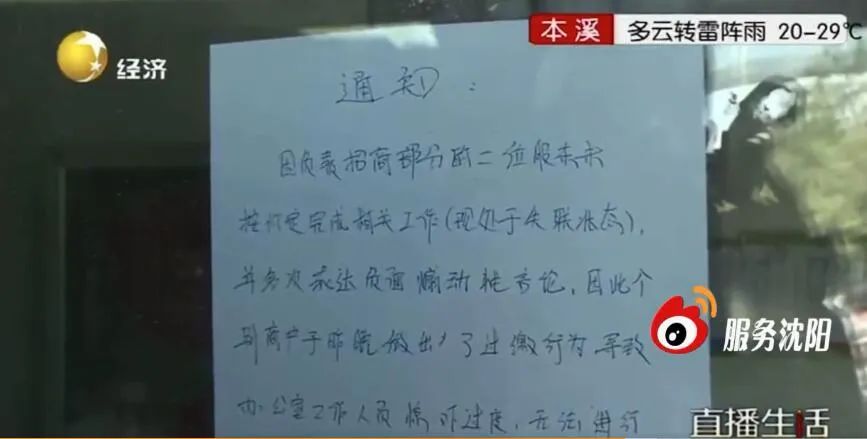 本溪 多云转雷阵雨 20-29℃
经济
通知:
因负责招商部分的二位股东未
按约定完成相关工作(现处于失联状态),
并多次表达负面煽动性言论,因此个
别商户于昨晚做出了过激行为导致
办公室工作人员惊吓过度,无法进行
服务沈阳
直播生活